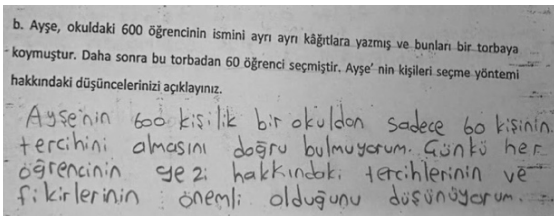 b. Ayşe, okuldaki 600 öğrencinin ismini ayrı ayrı kâğıtlara yazmış ve bunları bir torbaya
koymuştur. Daha sonra bu torbadan 60 öğrenci seçmiştir. Ayşe' nin kişileri seçme yöntemi
hakkındaki düşüncelerinizi açıklayınız.
Ayşe'nin 600 kişilik bir okuldan sadece 60 kişinin
tercihini almasını doğru bulmuyorum. Çünkü her
öğrencinin gezi hakkındaki tercihlerinin ve
fikirlerinin önemli olduğunu düşünüyorum.